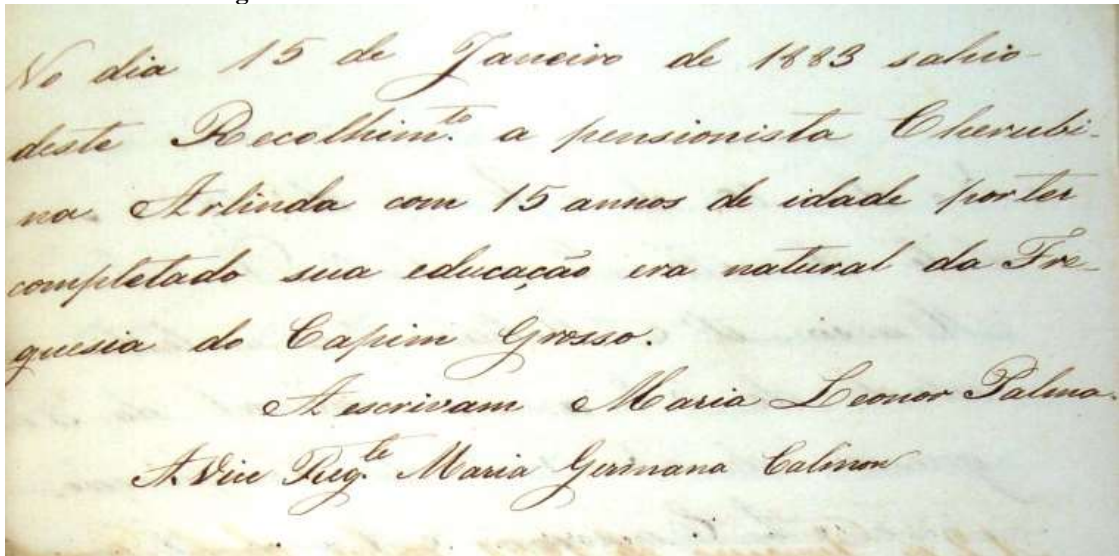 No dia 15 de Janeiro de 1883 sahio
deste Recolhim.to a pensionista Cherubi-
na Arlinda com 15 annos de idade por ter
completado sua educação era natural da Fre-
guesia do Capim Grosso.
A escrivam Maria Leonor Palma
A Vice Reg.te Maria Germana Calmon